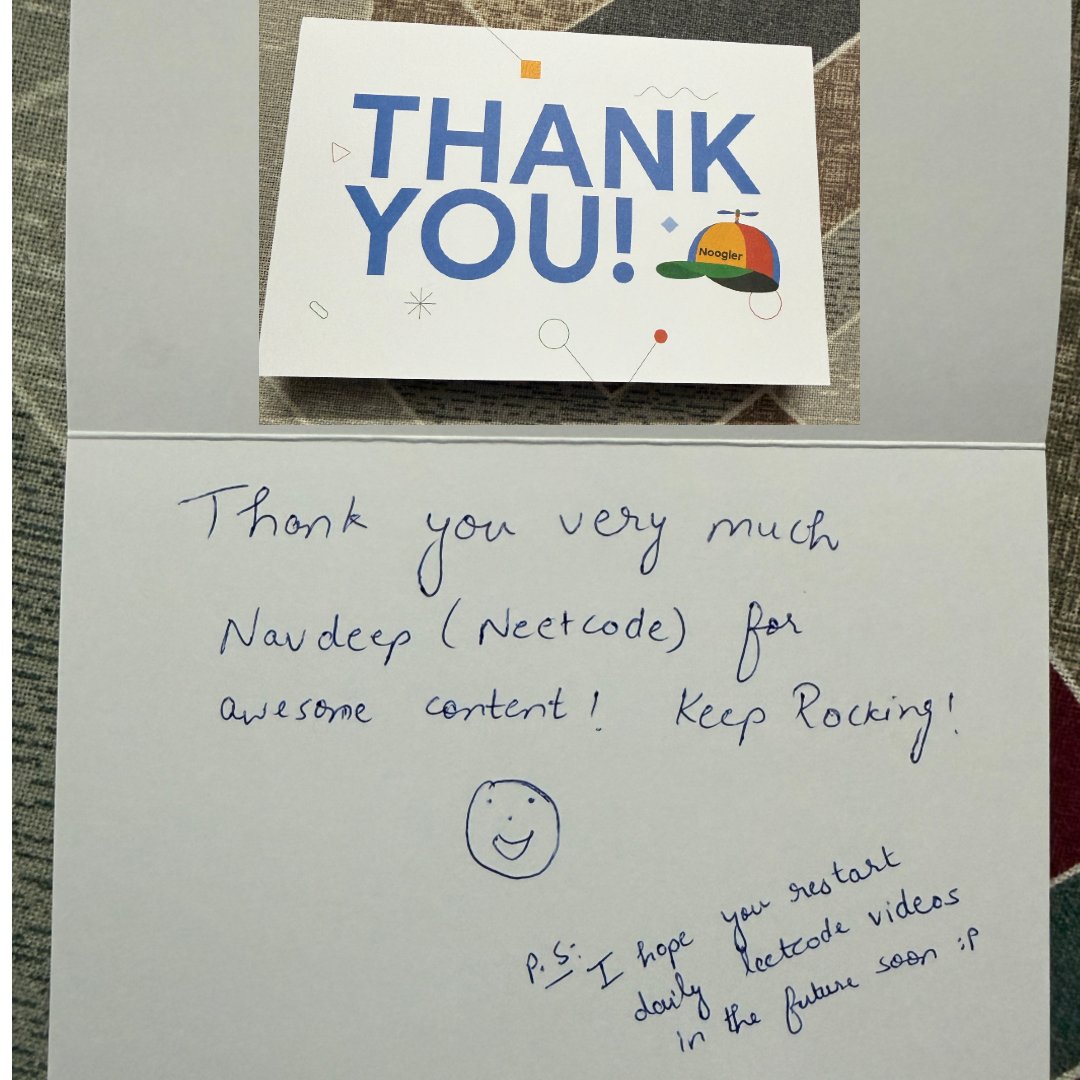 THANK
YOU!
Noogler
Thank you very much
Navdeep (Neetcode) for
awesome content! Keep Rocking!
P.S: I hope you restart
daily leetcode videos
in the future soon :P